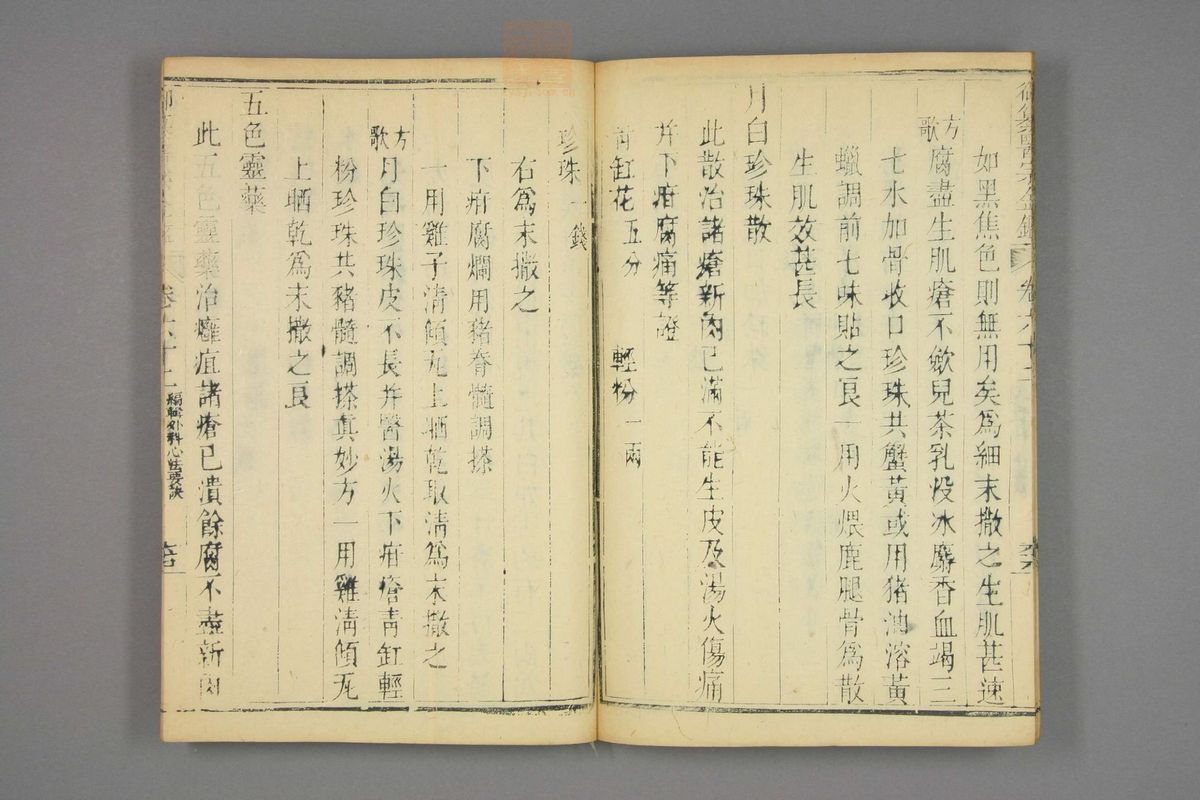 如黑焦色則無用矣爲細末撒之生肌甚速
方歌
腐盡生肌瘡不歛兒茶乳没冰麝香血竭三
七水加骨收口珍珠共蟹黃或用猪油溶黃
蠟調前七味貼之良一用火煨鹿腿骨爲散
生肌效甚長
月白珍珠散
此散治諸瘡新肉已滿不能生皮及湯火傷痛
并下疳腐痛等證
青缸花五分 輕粉一兩
珍珠一錢
右爲末撒之
下疳腐爛用猪脊髓調搽
一用雞子清傾瓦上晒乾取清爲末撒之
方歌
月白珍珠皮不長并醫湯火下疳瘡青缸輕
粉珍珠共猪髓調搽真妙方一用雞清傾瓦
上晒乾爲末撒之良
五色靈藥
此五色靈藥治癰疽諸瘡已潰餘腐不盡新肉
卷六十二
編輯外科心法要訣